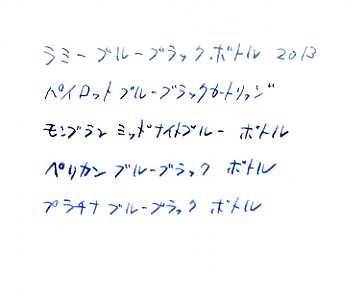 ラミーブルーブラック.ボトル 2013
パイロットブルーブラックカートリッジ
モンブラン ミッドナイトブルー ボトル
ペリカン ブルーブラック ボトル
プラチナ ブルーブラック ボトル